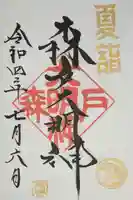 夏詣
森戸大明神
令和四年七月六日